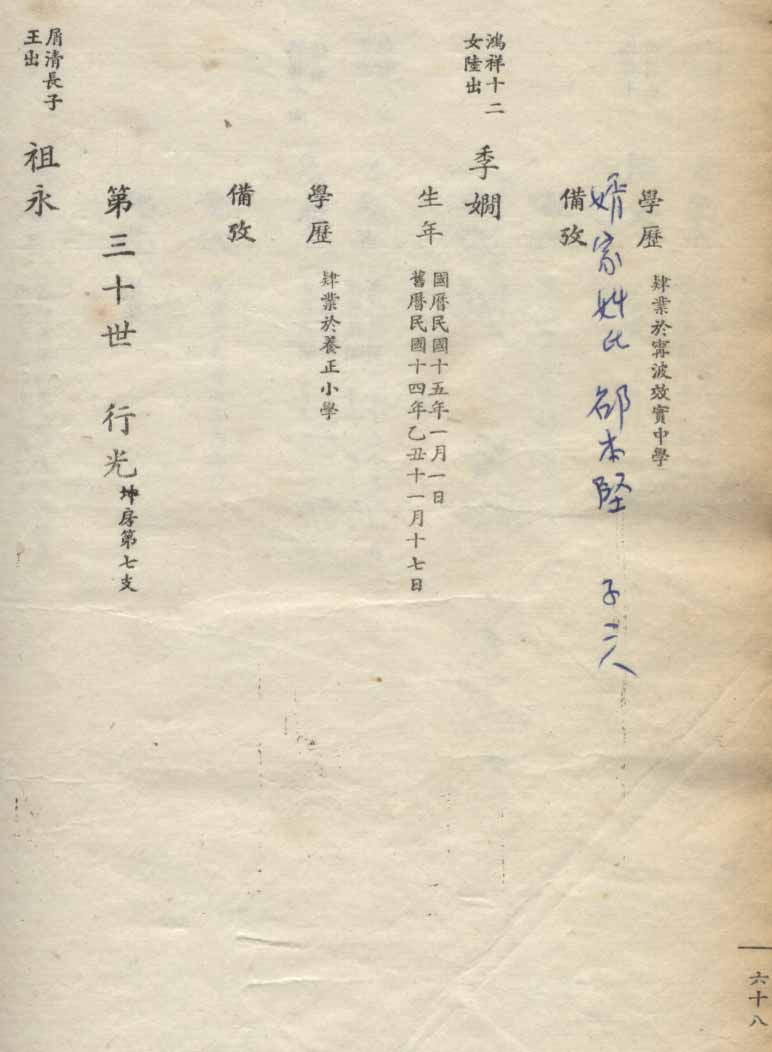 學歷
肄業於甯波效實中學
婿家姓氏 邵本堅 子二人
備攷
鴻祥十二
女陸出
季嫺
生年
國曆民國十五年一月一日
舊曆民國十四年乙丑十一月十七日
學歷
肄業於養正小學
備攷
第三十世 行光
坤房第七支
屑清長子
王出
祖永
六十八